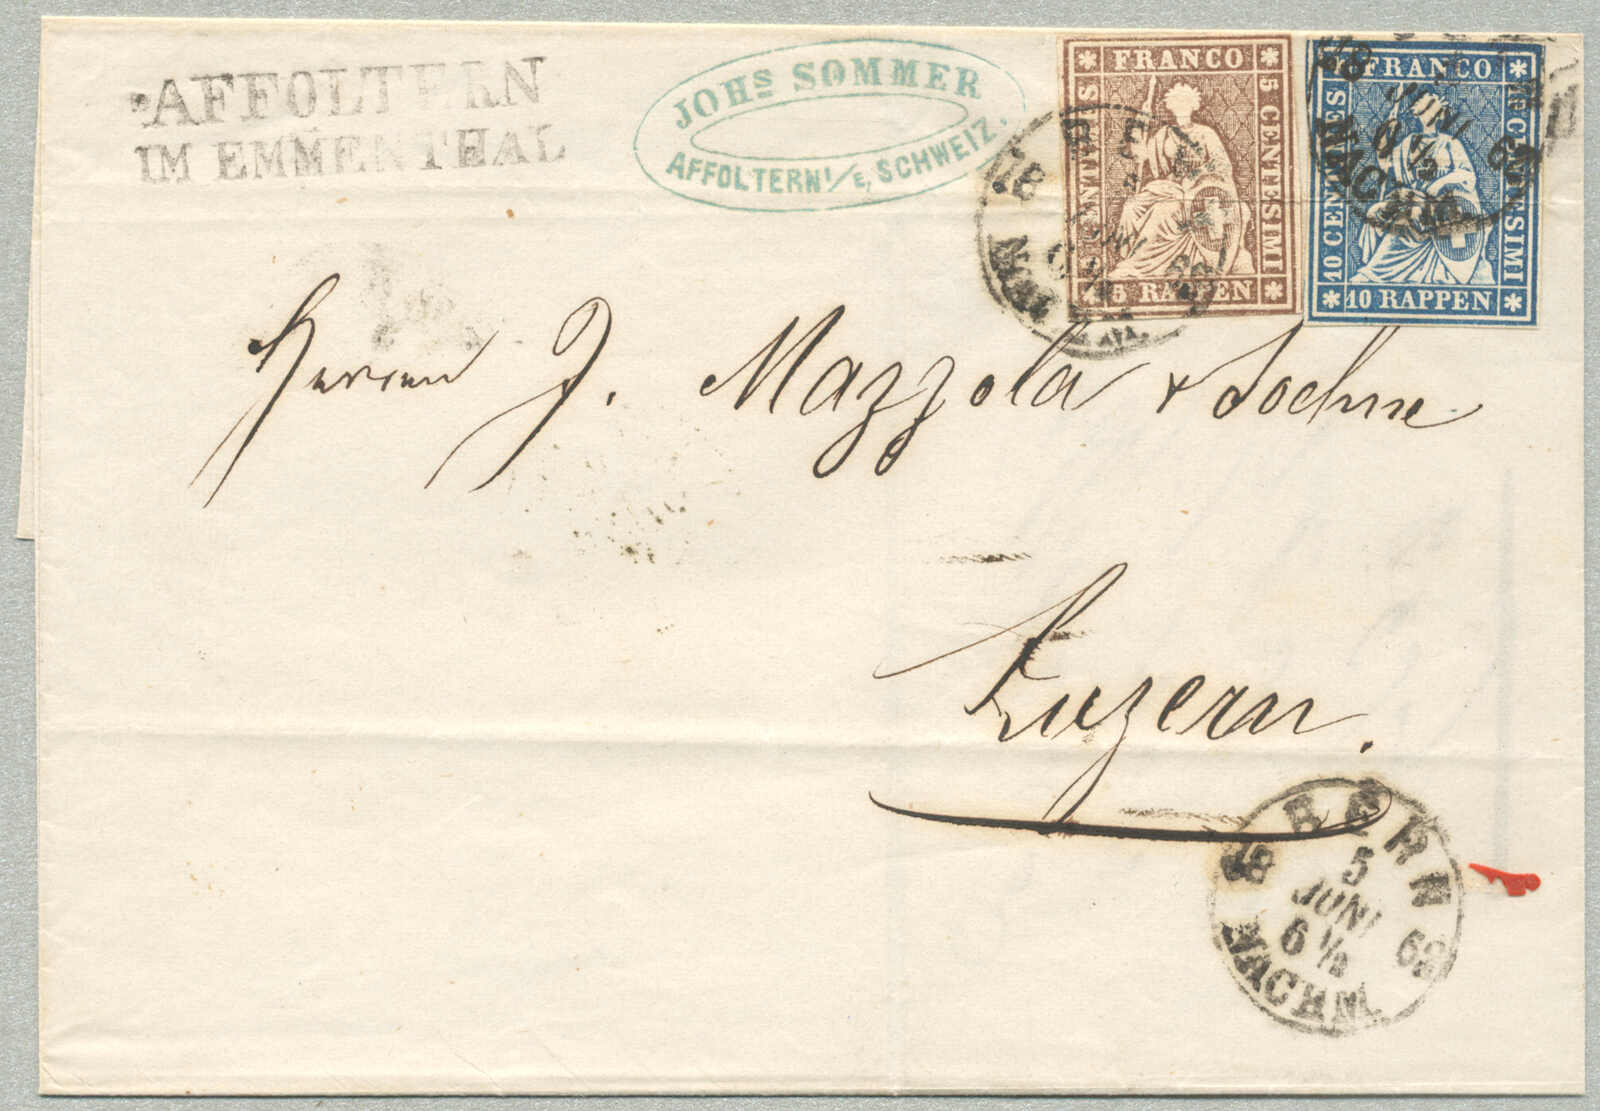 AFFOLTERN
IM EMMENTHAL
JOHS SOMMER
AFFOLTERN I/E, SCHWEIZ.
FRANCO
5 CENTESIMI
5 RAPPEN
FRANCO
10 CENTIMES
10 RAPPEN
18 JUNI 62
6 1/2
NACHM
Herren J. Mazzola & Soehne
Luzern.
BERN
18 5 62
JUNI
6 1/2
NACHM